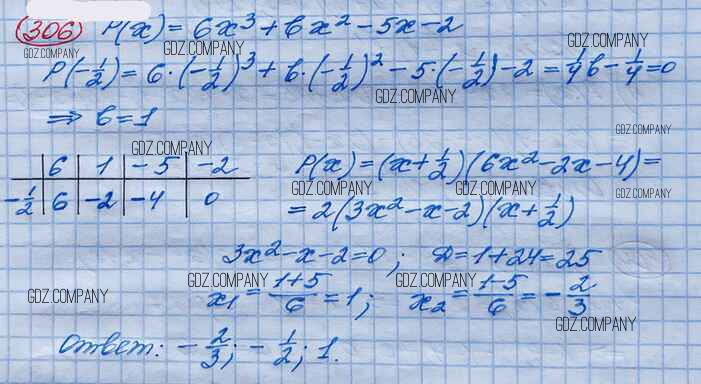 (306) P(x) = 6x³ + bx² - 5x - 2
GDZ.COMPANY
GDZ.COMPANY
GDZ.COMPANY
P(-1/2) = 6·(-1/2)³ + b·(-1/2)² - 5·(-1/2) - 2 = 1/4 b - 1/4 = 0
GDZ.COMPANY
⇒ b = 1
GDZ.COMPANY
GDZ.COMPANY
6 | 1 | -5 | -2
P(x) = (x + 1/2)(6x² - 2x - 4) =
GDZ.COMPANY
GDZ.COMPANY
GDZ.COMPANY
-1/2 | 6 | -2 | -4 | 0
= 2(3x² - x - 2)(x + 1/2)
3x² - x - 2 = 0; D = 1 + 24 = 25
GDZ.COMPANY
GDZ.COMPANY
GDZ.COMPANY
x₁ = (1+5)/6 = 1; x₂ = (1-5)/6 = -2/3
GDZ.COMPANY
Ответ: -2/3; -1/2; 1.